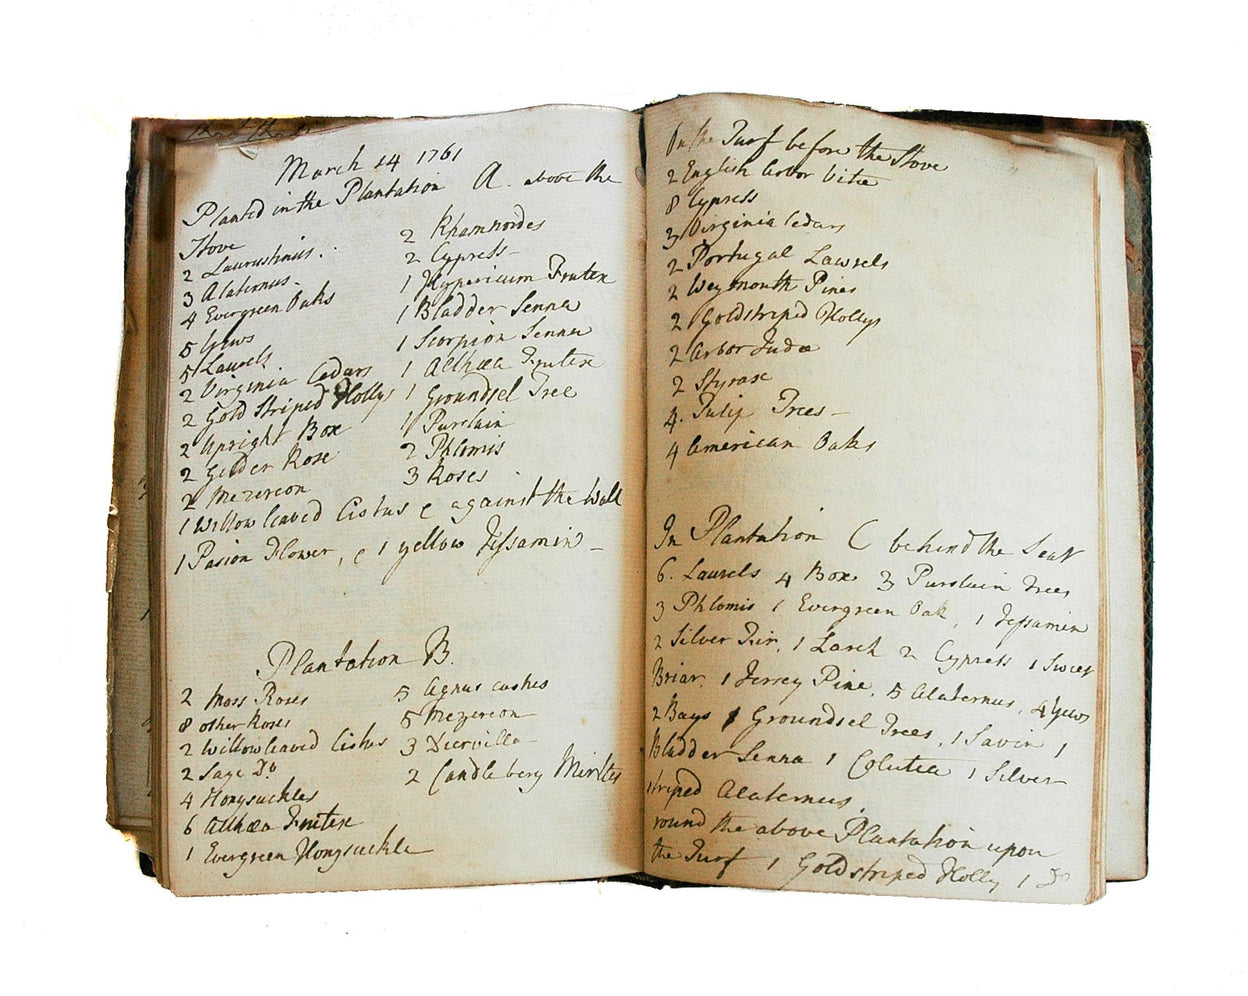 March 14 1761
Planted in the Plantation A. above the
Stove
2 Laurustinus.
3 Alaternus.
4 Evergreen Oaks
5 Yews
5 Laurels
2 Virginia Cedars
2 Gold Striped Hollys
2 Upright Box
2 Gelder Rose
2 Mezereon
2 Rhamnoides
2 Cypress
1 Hypericum Frutex
1 Bladder Senna
1 Scorpion Senna
1 Althæa Frutex
1 Groundsel Tree
1 Purslain
2 Phlomis
3 Roses
1 Willow leaved Cistus & against the Wall
1 Pasion Flower, & 1 yellow Jessamin
Plantation B.
2 Moss Roses
8 other Roses
2 Willow leaved Cistus
2 Sage Do
4 Honysuckles
6 Althæa Frutex
1 Evergreen Honysuckle
5 Agnus castus
5 Mezereon
3 Diervilla
2 Candle bery Mirtles
On the Turf before the Stove
2 English Arbor Vitæ
8 Cypress
3 Virginia Cedars
2 Portugal Lawrels
2 Weymouth Pines
2 Goldstriped Hollys
2 Arbor Judæ
2 Styrax
4. Tulip Trees
4 American Oaks
In Plantation C behind the Seat
6. Laurels 4 Box 3 Purslain Trees
3 Phlomis 1 Evergreen Oak, 1 Jessamin
2 Silver Fir, 1 Larch 2 Cypress 1 Sweet
Briar, 1 Jersey Pine, 5 Alaternus, 4 Yews
2 Bays 1 Groundsel Trees, 1 Savin 1
Bladder Senna 1 Colutea 1 Silver
striped Alaternus.
round the above Plantation upon
the Turf 1 Goldstriped Holly 1 Do